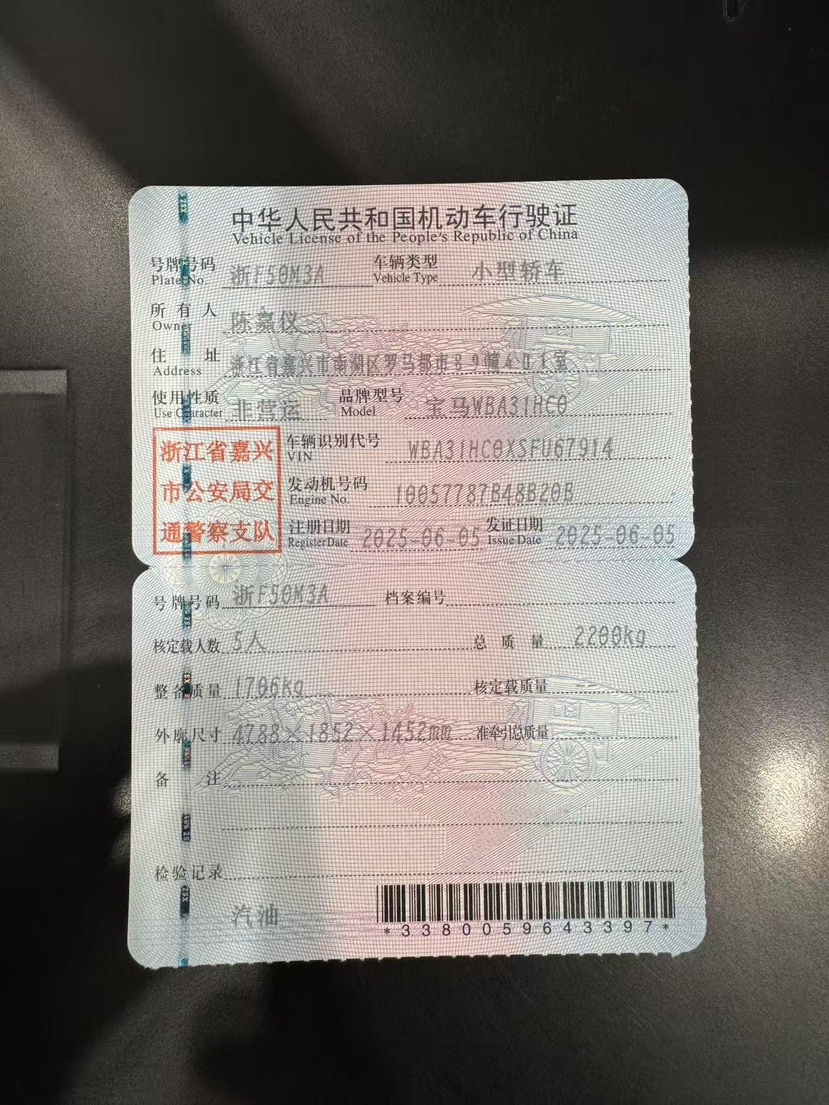 中华人民共和国机动车行驶证
Vehicle License of the People's Republic of China
号牌号码 浙F50M3A 车辆类型 小型轿车
Plate No. Vehicle Type
所有人 陈嘉仪
Owner
住址 浙江省嘉兴市南湖区罗马都市89幢401室
Address
使用性质 非营运 品牌型号 宝马WBA31HC0
Use Character Model
浙江省嘉兴
市公安局交
通警察支队
车辆识别代号 WBA31HC0XSFU67914
VIN
发动机号码 10057787B48B20B
Engine No.
注册日期 2025-06-05 发证日期 2025-06-05
Register Date Issue Date
号牌号码 浙F50M3A 档案编号
核定载人数 5人 总质量 2200kg
整备质量 1706kg 核定载质量
外廓尺寸 4788×1852×1452mm 准牵引总质量
备注
检验记录
汽油
*3380059643397*